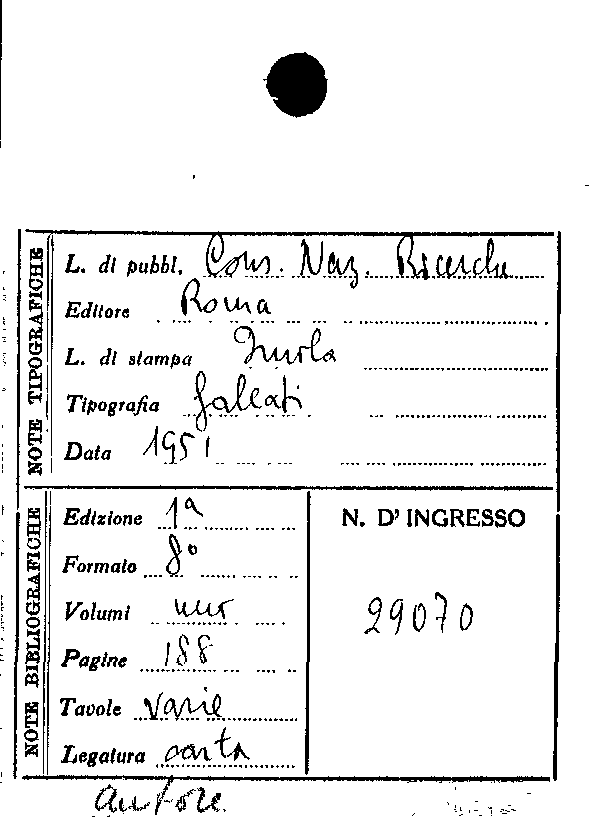 NOTE TIPOGRAFICHE
L. di pubbl. Cons. Naz. Ricerche
Editore Roma
L. di stampa Imola
Tipografia Galeati
Data 1951
NOTE BIBLIOGRAFICHE
Edizione 1ª
Formato 8º
Volumi uno
Pagine 188
Tavole varie
Legatura carta
N. D' INGRESSO
29070
autore.